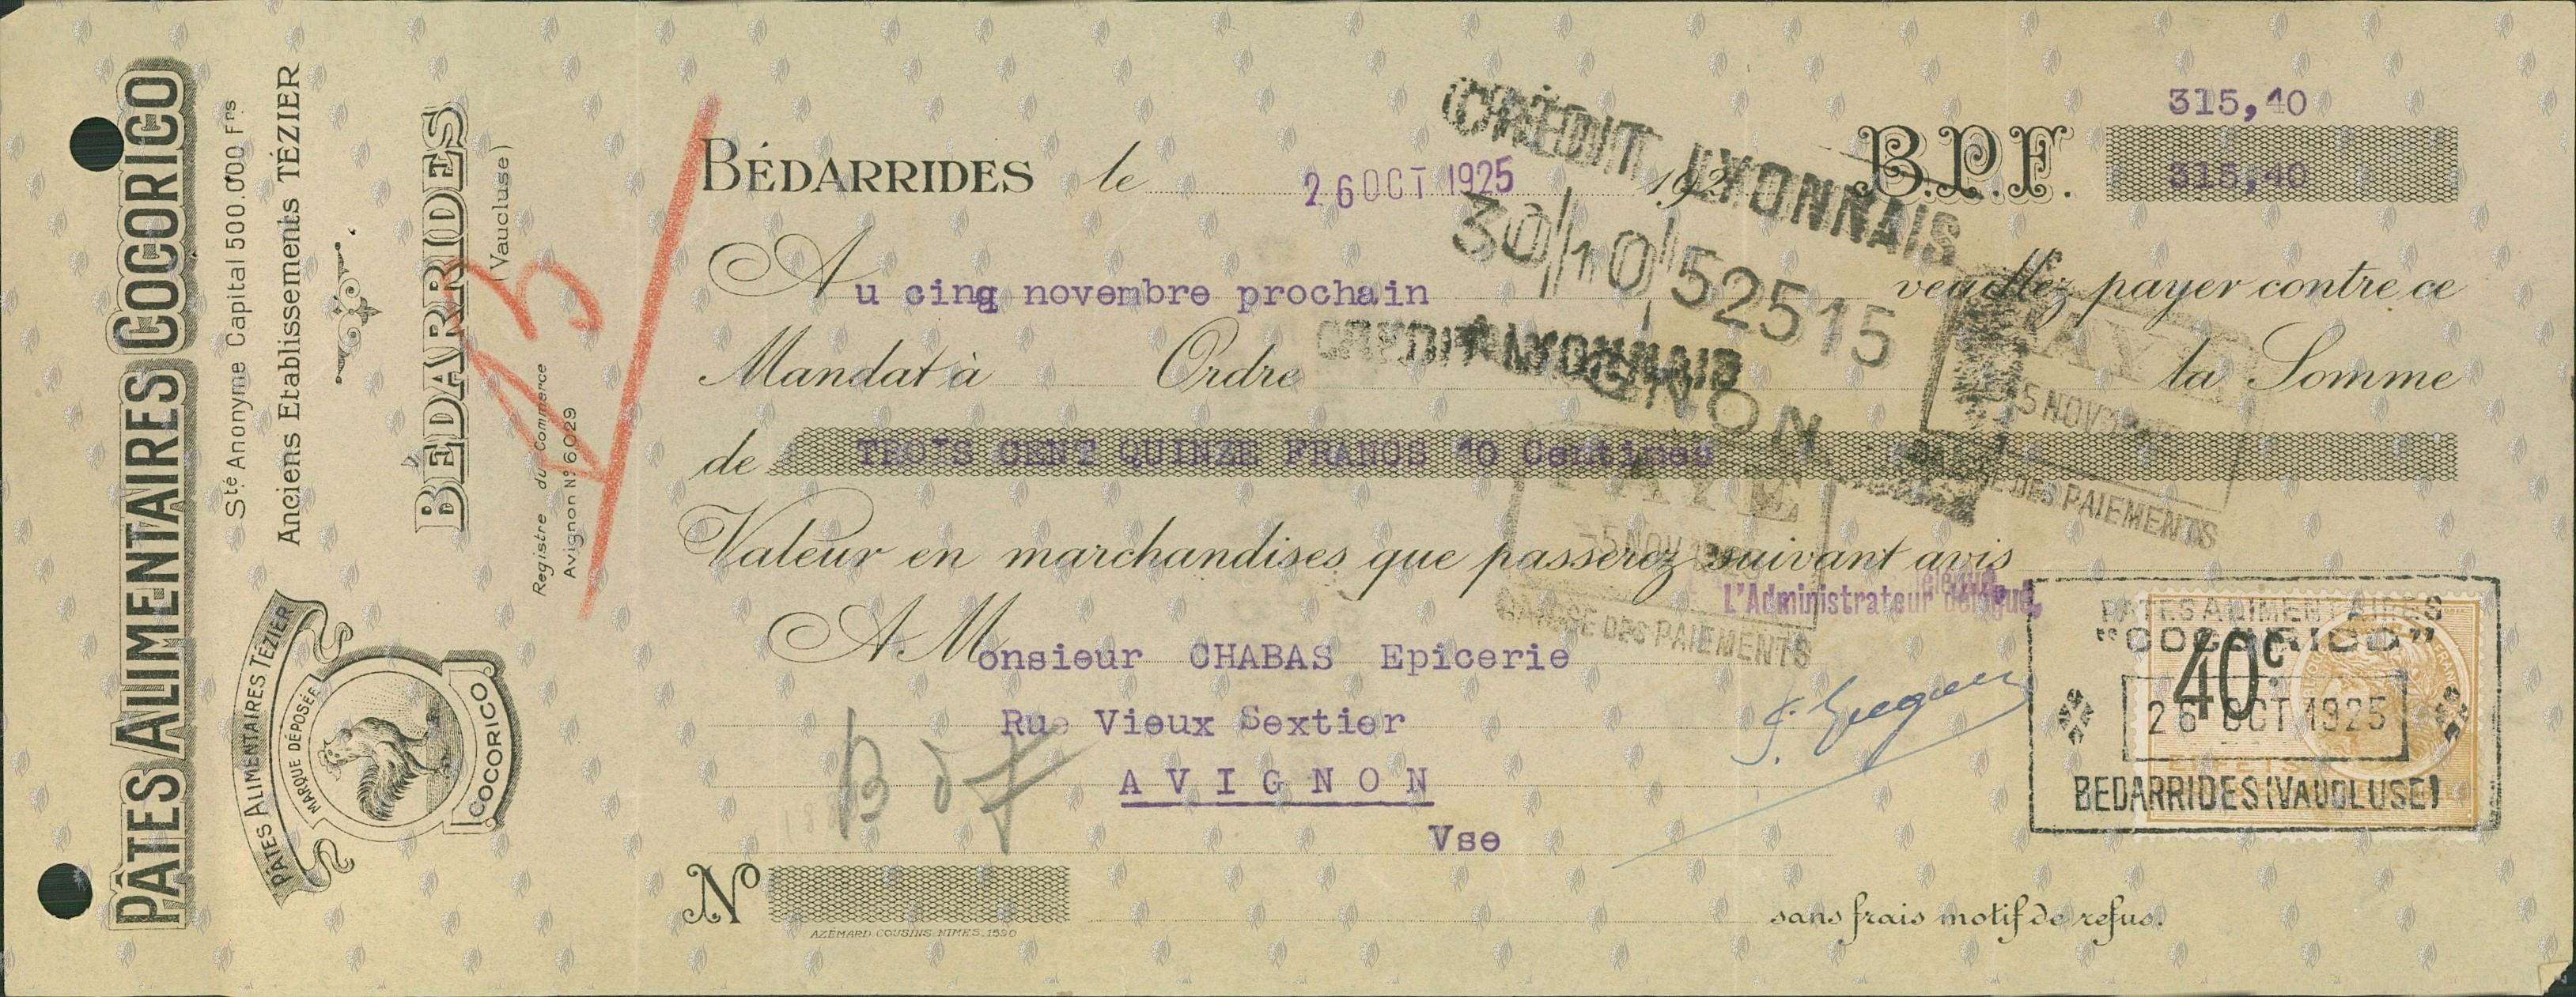 PÂTES ALIMENTAIRES COCORICO
Sté Anonyme Capital 500.000 Frs
Anciens Etablissements TÉZIER
BÉDARRIDES
(Vaucluse)
Registre du Commerce
Avignon No 6029
PÂTES ALIMENTAIRES TÉZIER
MARQUE DÉPOSÉE
COCORICO
315,40
BÉDARRIDES le 26 OCT 1925 192 B.P.F. 315,40
CRÉDIT LYONNAIS
30/10/52515
Au cinq novembre prochain veuillez payer contre ce
CREDIT LYONNAIS
Mandat à Ordre la Somme
5 NOV
de TROIS CENT QUINZE FRANCS 40 Centimes
DES PAIEMENTS
PAYE
-5 NOV
Valeur en marchandises que passerez suivant avis
L'Administrateur délégué,
CAISSE DES PAIEMENTS
A Monsieur CHABAS Epicerie
Rue Vieux Sextier
AVIGNON
Vse
PATES ALIMENTAIRES
"COCORICO"
40c
26 OCT 1925
EFFETS
BEDARRIDES (VAUCLUSE)
No
AZÉMARD COUSINS NIMES
sans frais motif de refus.